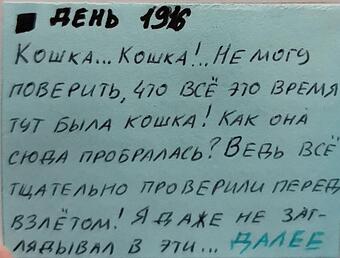 ДЕНЬ 1916
КОШКА... КОШКА!.. НЕ МОГУ
ПОВЕРИТЬ, ЧТО ВСЁ ЭТО ВРЕМЯ
ТУТ БЫЛА КОШКА! КАК ОНА
СЮДА ПРОБРАЛАСЬ? ВЕДЬ ВСЁ
ТЩАТЕЛЬНО ПРОВЕРИЛИ ПЕРЕД
ВЗЛЁТОМ! Я ДАЖЕ НЕ ЗАГ-
ЛЯДЫВАЛ В ЭТИ... ДАЛЕЕ